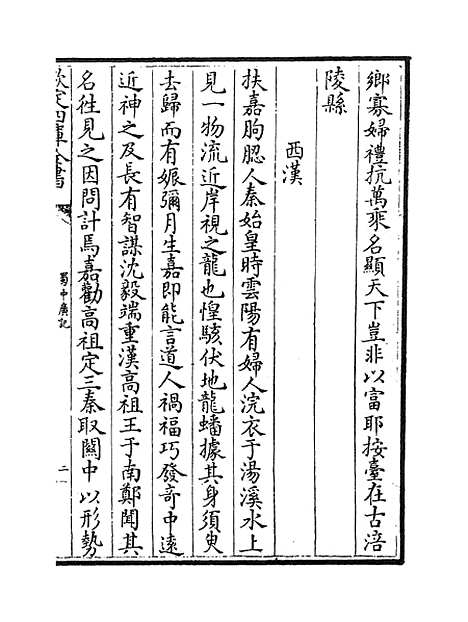 鄉寡婦禮抗萬乘名顯天下豈非以富耶按臺在古涪
陵縣
西漢
扶嘉朐䏰人秦始皇時雲陽有婦人浣衣于湯溪水上
見一物流近岸視之龍也惶駭伏地龍蟠據其身須臾
去歸而有娠彌月生嘉即能言道人禍福巧發奇中遠
近神之及長有智謀沈毅端重漢高祖王于南鄭聞其
名徃見之因問計焉嘉勸高祖定三秦取關中以形勢
欽定四庫全書
蜀中廣記
二